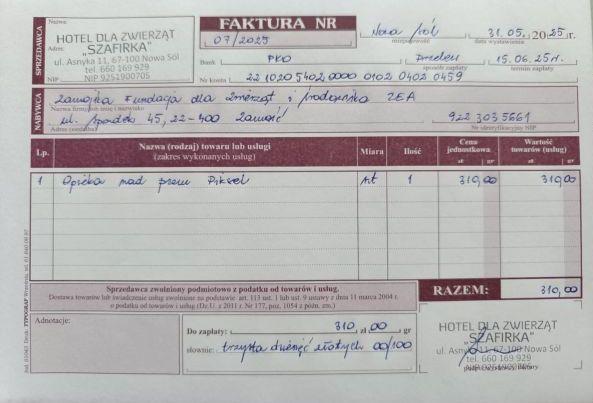 FAKTURA NR
07/2025
Nowa Sól
miejscowość
31.05.2025r.
data wystawienia
SPRZEDAWCA
Nazwa:
HOTEL DLA ZWIERZĄT
Adres:
„SZAFIRKA”
ul. Asnyka 11, 67-100 Nowa Sól
tel. 660 169 929
NIP
NIP 9251900705
Bank
PKO
Przelew
sposób zapłaty
15.06.25r.
termin zapłaty
Nr konta
22 1020 5402 0000 0102 0402 0459
NABYWCA
Zamojska Fundacja dla Zwierząt i Środowiska ZEA
Nazwa firmy lub imię i nazwisko
ul. 45, 22-400 Zamość
Adres (siedziba)
922 303 5661
Nr identyfikacyjny NIP
Lp.
Nazwa (rodzaj) towaru lub usługi
(zakres wykonanych usług)
Miara
Ilość
Cena
jednostkowa
zł gr
Wartość
towarów (usług)
zł gr
1 Opieka nad psem Piksel szt 1 310,00 310,00
Sprzedawca zwolniony podmiotowo z podatku od towarów i usług.
Dostawa towarów lub świadczenie usług zwolnione na podstawie art. 113 ust. 1 lub ust. 9 ustawy z dnia 11 marca 2004 r.
o podatku od towarów i usług (Dz.U. z 2011 r. Nr 177, poz. 1054 z późn. zm.)
RAZEM:
310,00
Adnotacje:
Do zapłaty:
310 zł 00 gr
słownie:
trzysta dziesięć złotych 00/100
HOTEL DLA ZWIERZĄT
„SZAFIRKA”
ul. Asnyka 11, 67-100 Nowa Sól
tel. 660 169 929
NIP 9251900705